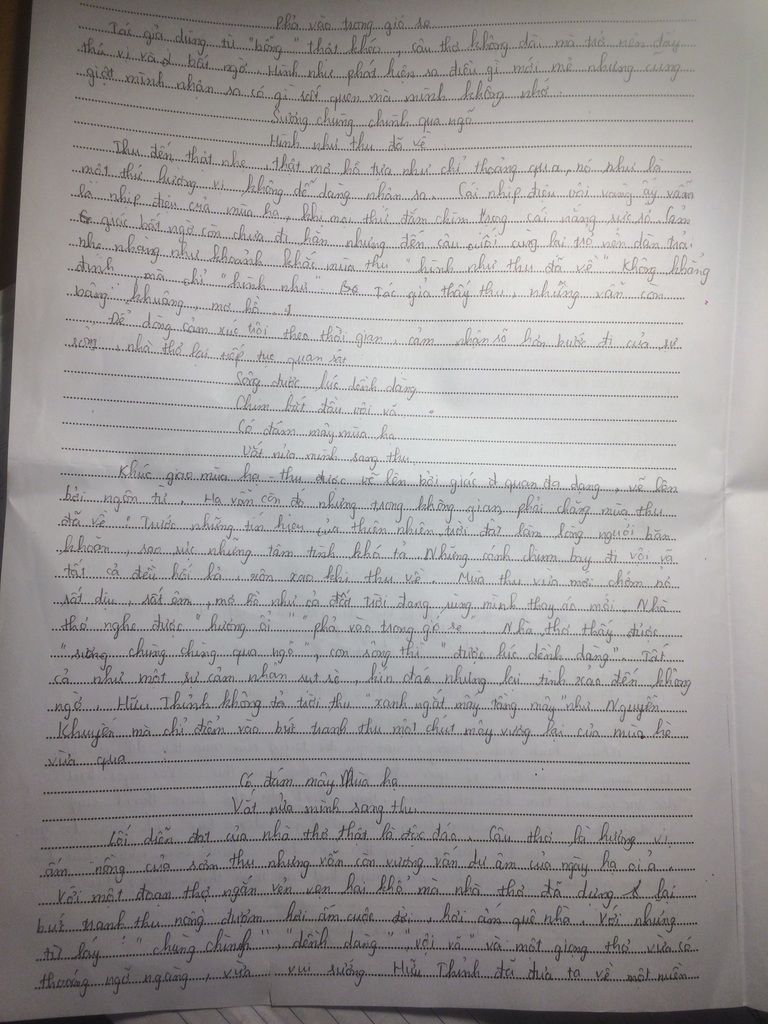 Phả vào trong gió se
Tác giả dùng từ "bỗng" thật khéo, câu thơ không dài mà trở nên đầy
thú vị và bất ngờ. Hình như phát hiện ra điều gì mới mẻ nhưng cũng
giật mình nhận ra có gì rất quen mà mình không nhớ.
Sương chùng chình qua ngõ
Hình như thu đã về
Thu đến thật nhẹ, thật mơ hồ tựa như chỉ thoảng qua, nó như là
một thứ hương vị không dễ dàng nhận ra. Cái nhịp điệu vội vàng ấy vẫn
là nhịp điệu của mùa hạ, khi mọi thứ đắm chìm trong cái nắng rực rỡ. Cảm
giác bất ngờ còn chưa đi hẳn nhưng đến câu cuối cùng lại trở nên dàn trải
nhẹ nhàng như khoảnh khắc mùa thu "hình như thu đã về" Không khẳng
định, mà chỉ "hình như". Tác giả thấy thu, nhưng vẫn còn
bâng khuâng, mơ hồ.
Để dòng cảm xúc trôi theo thời gian, cảm nhận rõ hơn bước đi của sự
sống, nhà thơ lại tiếp tục quan sát
Sông được lúc dềnh dàng
Chim bắt đầu vội vã
Có đám mây mùa hạ
Vắt nửa mình sang thu.
Khúc giao mùa hạ - thu được vẽ lên bởi giác quan đa dạng, vẽ lên
bởi ngôn từ. Hạ vẫn còn đó nhưng trong không gian phải chăng mùa thu
đã về. Trước những tín hiệu của thiên nhiên, trời đất làm lòng người băn
khoăn, rạo rực những tâm tình khó tả. Những cánh chim bay đi vội vã
tất cả đều hối hả, xôn xao khi thu về. Mùa thu vừa mới chớm nó
rất dịu, rất êm, mơ hồ như cả đất trời đang rùng mình thay áo mới. Nhà
thơ nghe được "hương ổi" "phả vào trong gió se". Nhà thơ thấy được
"sương chùng chình qua ngõ", con sông thì "được lúc dềnh dàng". Tất
cả như một sự cảm nhận rụt rè, kín đáo nhưng lại tinh xảo đến không
ngờ. Hữu Thỉnh không tả trời thu "xanh ngắt mấy tầng mây" như Nguyễn
Khuyến mà chỉ điểm vào bức tranh thu một chút mây vương lại của mùa hè
vừa qua :
Có đám mây Mùa hạ
Vắt nửa mình sang thu.
Lối diễn đạt của nhà thơ thật là độc đáo. Câu thơ là hương vị
ấm nồng của sớm thu nhưng vẫn còn vương vấn dư âm của ngày hạ oi ả.
Với một đoạn thơ ngắn vẻn vẹn hai khổ mà nhà thơ đã dựng lại
bức tranh thu nồng đượm hơi ấm cuộc đời, hơi ấm quê nhà. Với những
từ láy : "chùng chình", "dềnh dàng" "vội vã" và một giọng thơ vừa có
thoáng ngỡ ngàng, vừa vui sướng Hữu Thỉnh đã đưa ta về một miền